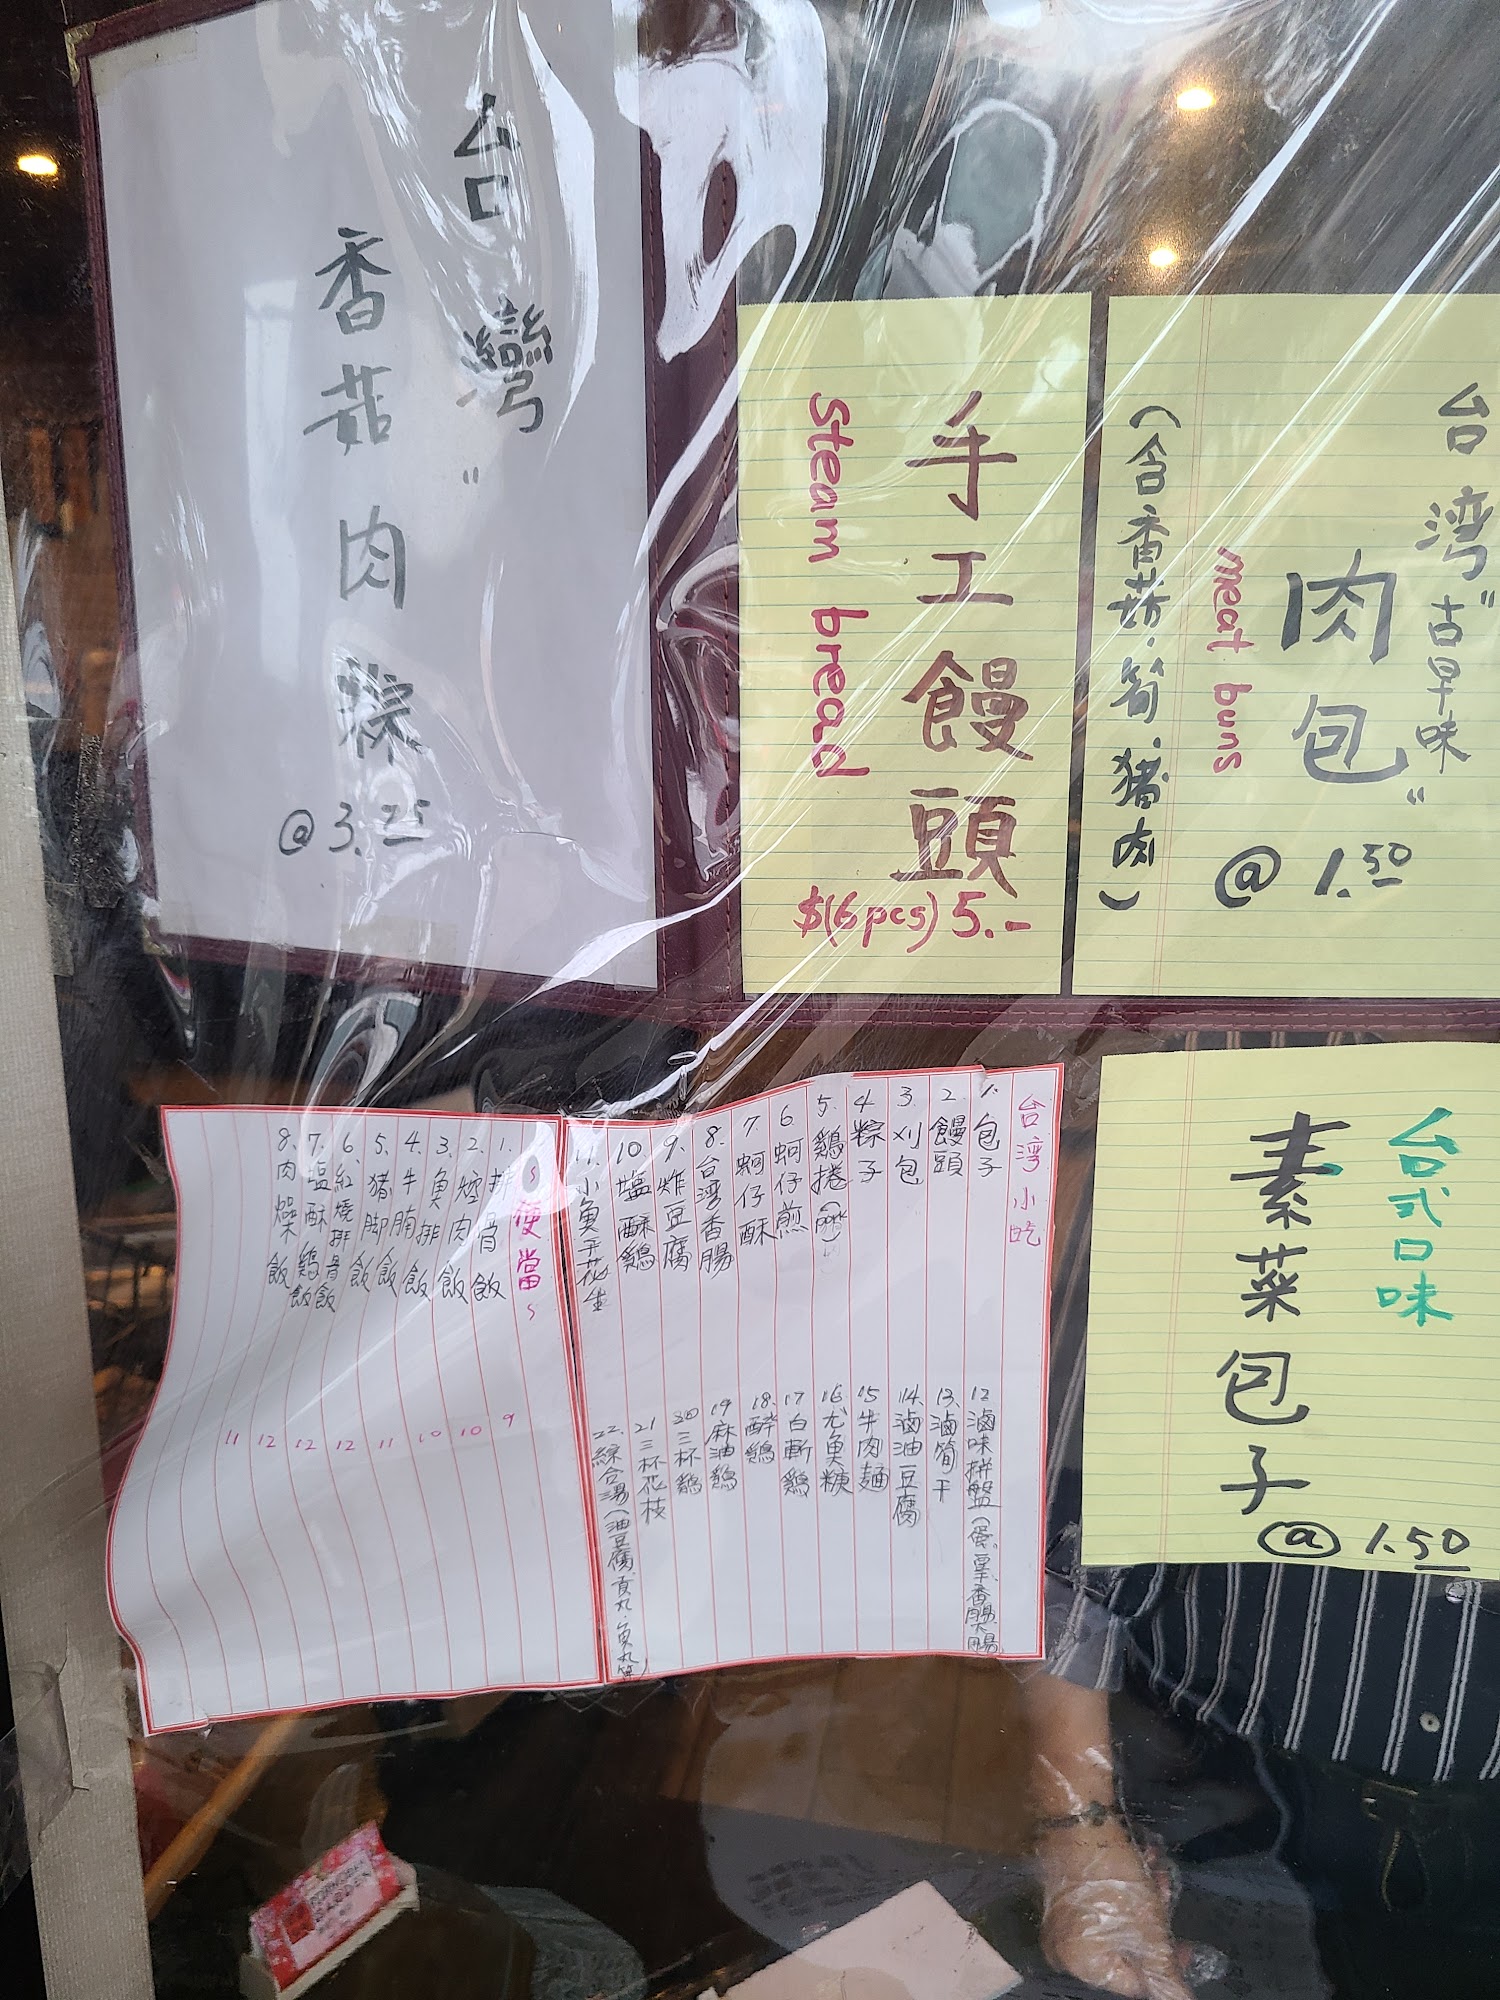 台灣"
香菇肉粽
@3.25
手工饅頭
Steam bread
$(6pcs) 5.-
台湾"古早味
肉包"
meat buns
(含香菇.筍.猪肉)
@ 1.50
台式口味
素菜包子
@ 1.50
台湾小吃
1. 包子
2. 饅頭
3. 刈包
4. 粽子
5. 鷄捲
6. 蚵仔煎
7. 蚵仔酥
8. 台湾香腸
9. 炸豆腐
10 塩酥鷄
11. 小魚干花生
12 滷味拼盤
13. 滷筍干
14. 滷油豆腐
15 牛肉麺
16 尤魚
17 白斬鷄
18. 醉鷄
19 麻油鷄
20 三杯鷄
21 三杯花枝
22. 綜合湯(油豆腐.貢丸.魚丸等)
~便當~
1. 排骨飯 9
2. 焢肉飯 10
3. 魚排飯 10
4. 牛腩飯 11
5. 猪脚飯 12
6. 紅燒排骨飯 12
7. 塩酥鷄飯 12
8. 肉燥飯 11